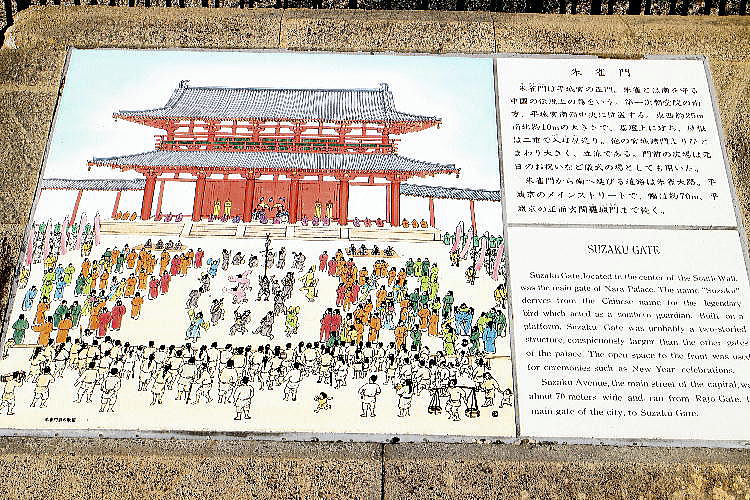 朱雀門
朱雀門は平城宮の正門。朱雀とは南を守る
中国の伝説上の鳥をいう。第一次朝堂院の南
方、平城宮南面中央に位置する。東西約25m
南北約10mの大きさで、基壇上に建ち、屋根
は二重で入母屋造り。他の宮城諸門よりひと
まわり大きく、立派である。門前の広場は元
日のお祝いなど儀式の場としても用いた。
朱雀門から南へ延びる道路は朱雀大路。平
城京のメインストリートで、幅は約70m、平
城京の正面玄関羅城門まで続く。
SUZAKU GATE
Suzaku Gate, located in the center of the South Wall,
was the main gate of Nara Palace. The name "Suzaku"
derives from the Chinese name for the legendary
bird which acted as a southern guardian. Built on a
platform, Suzaku Gate was probably a two-storied
structure, conspicuously larger than the other gates
of the palace. The open space to the front was used
for ceremonies such as New Year celebrations.
Suzaku Avenue, the main street of the capital, w
about 70 meters wide and ran from Rajo Gate, t
main gate of the city, to Suzaku Gate.